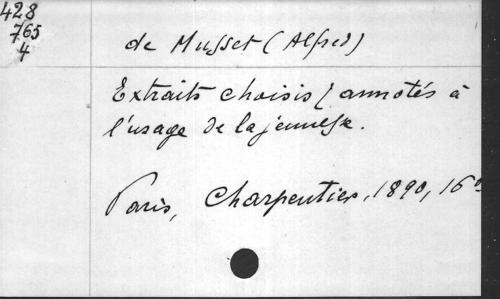 428
765
4
de Musset (Alfred)
Extraits choisis / annotés à
l'usage de la jeunesse.
Paris, Charpentier, 1890, 16º